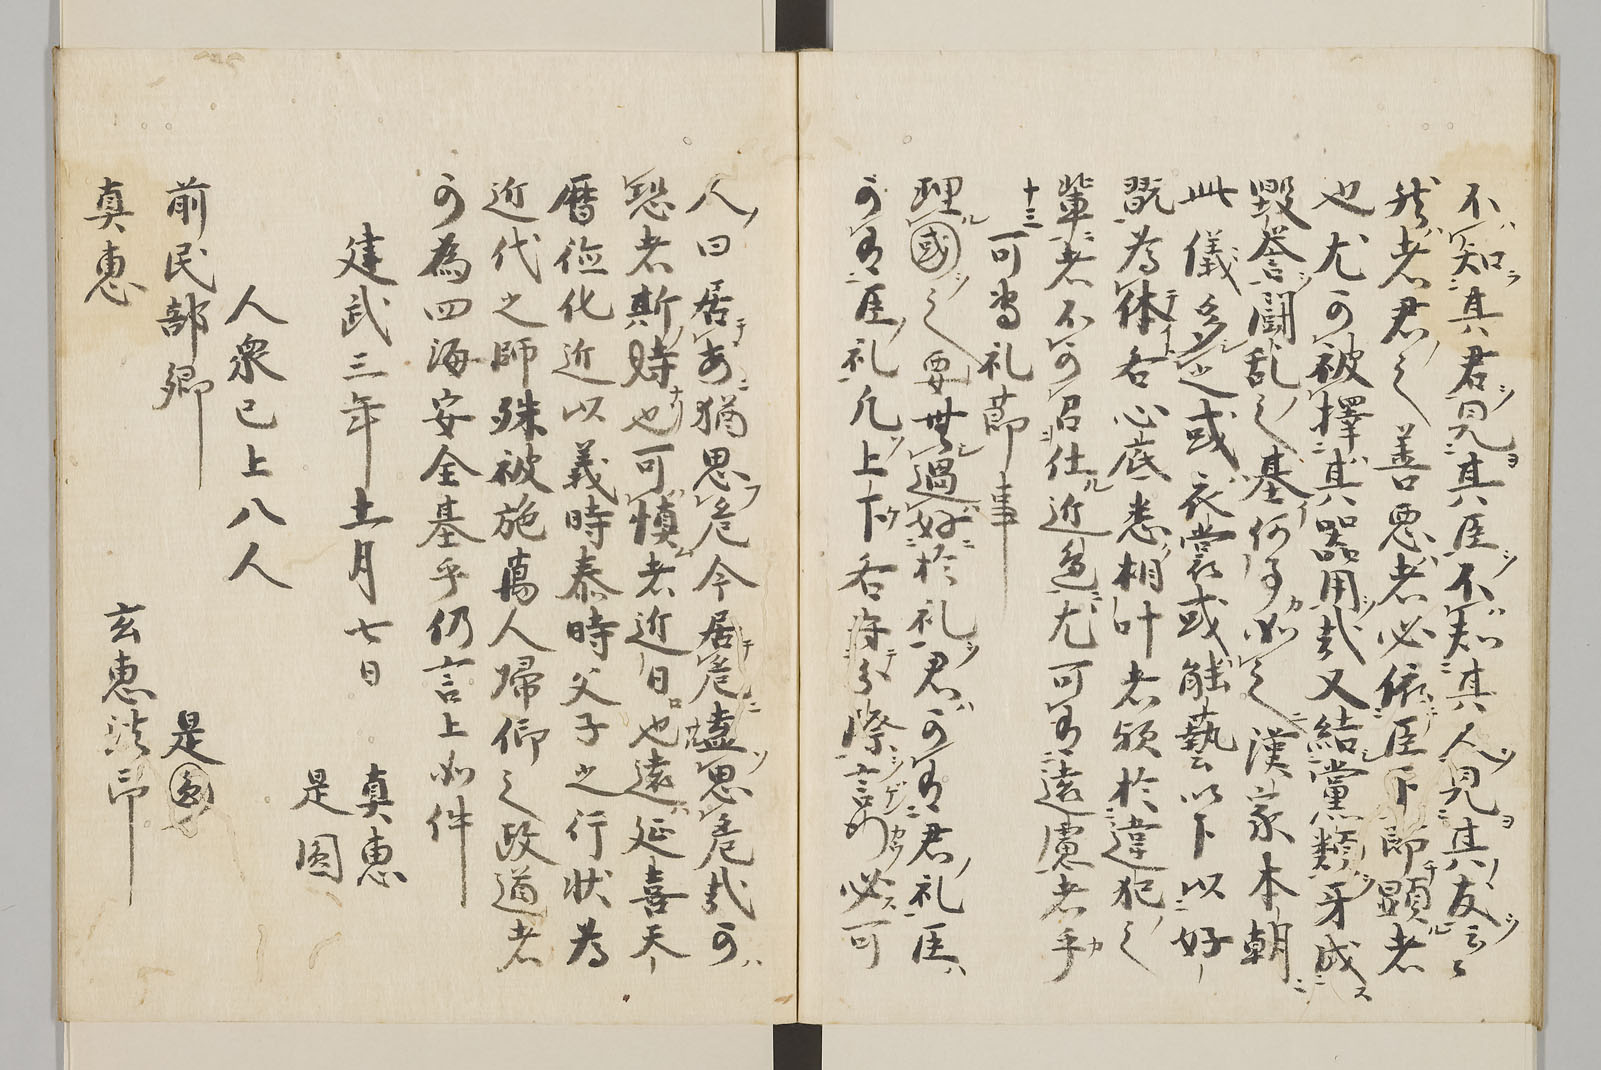 不知其君見其臣不知其人見其友云々
然者君之善悪者必依臣下即顕者
也尤可被択其器用哉又結党類互成
毀誉闘乱之基何事如之漢家本朝
此儀多之或衣裳或能芸以下以好
翫為体各心底悉相叶者歟於違犯之
輩者不可召仕近辺尤可有遠慮者乎
十三
可専礼節事
理国之要無過好於礼君可有君礼臣
可有臣礼凡上下各守分際言行必可
人曰居安猶思危今居危盍思危哉可
恐者斯時也可慎者近日也遠延喜天
暦徳化近以義時泰時父子之行状為
近代之師殊被施萬人帰仰之政道者
可為四海安全基乎仍言上如件
建武三年十一月七日 真恵
是圓
人衆已上八人
前民部卿 是圓
真恵 玄恵法印